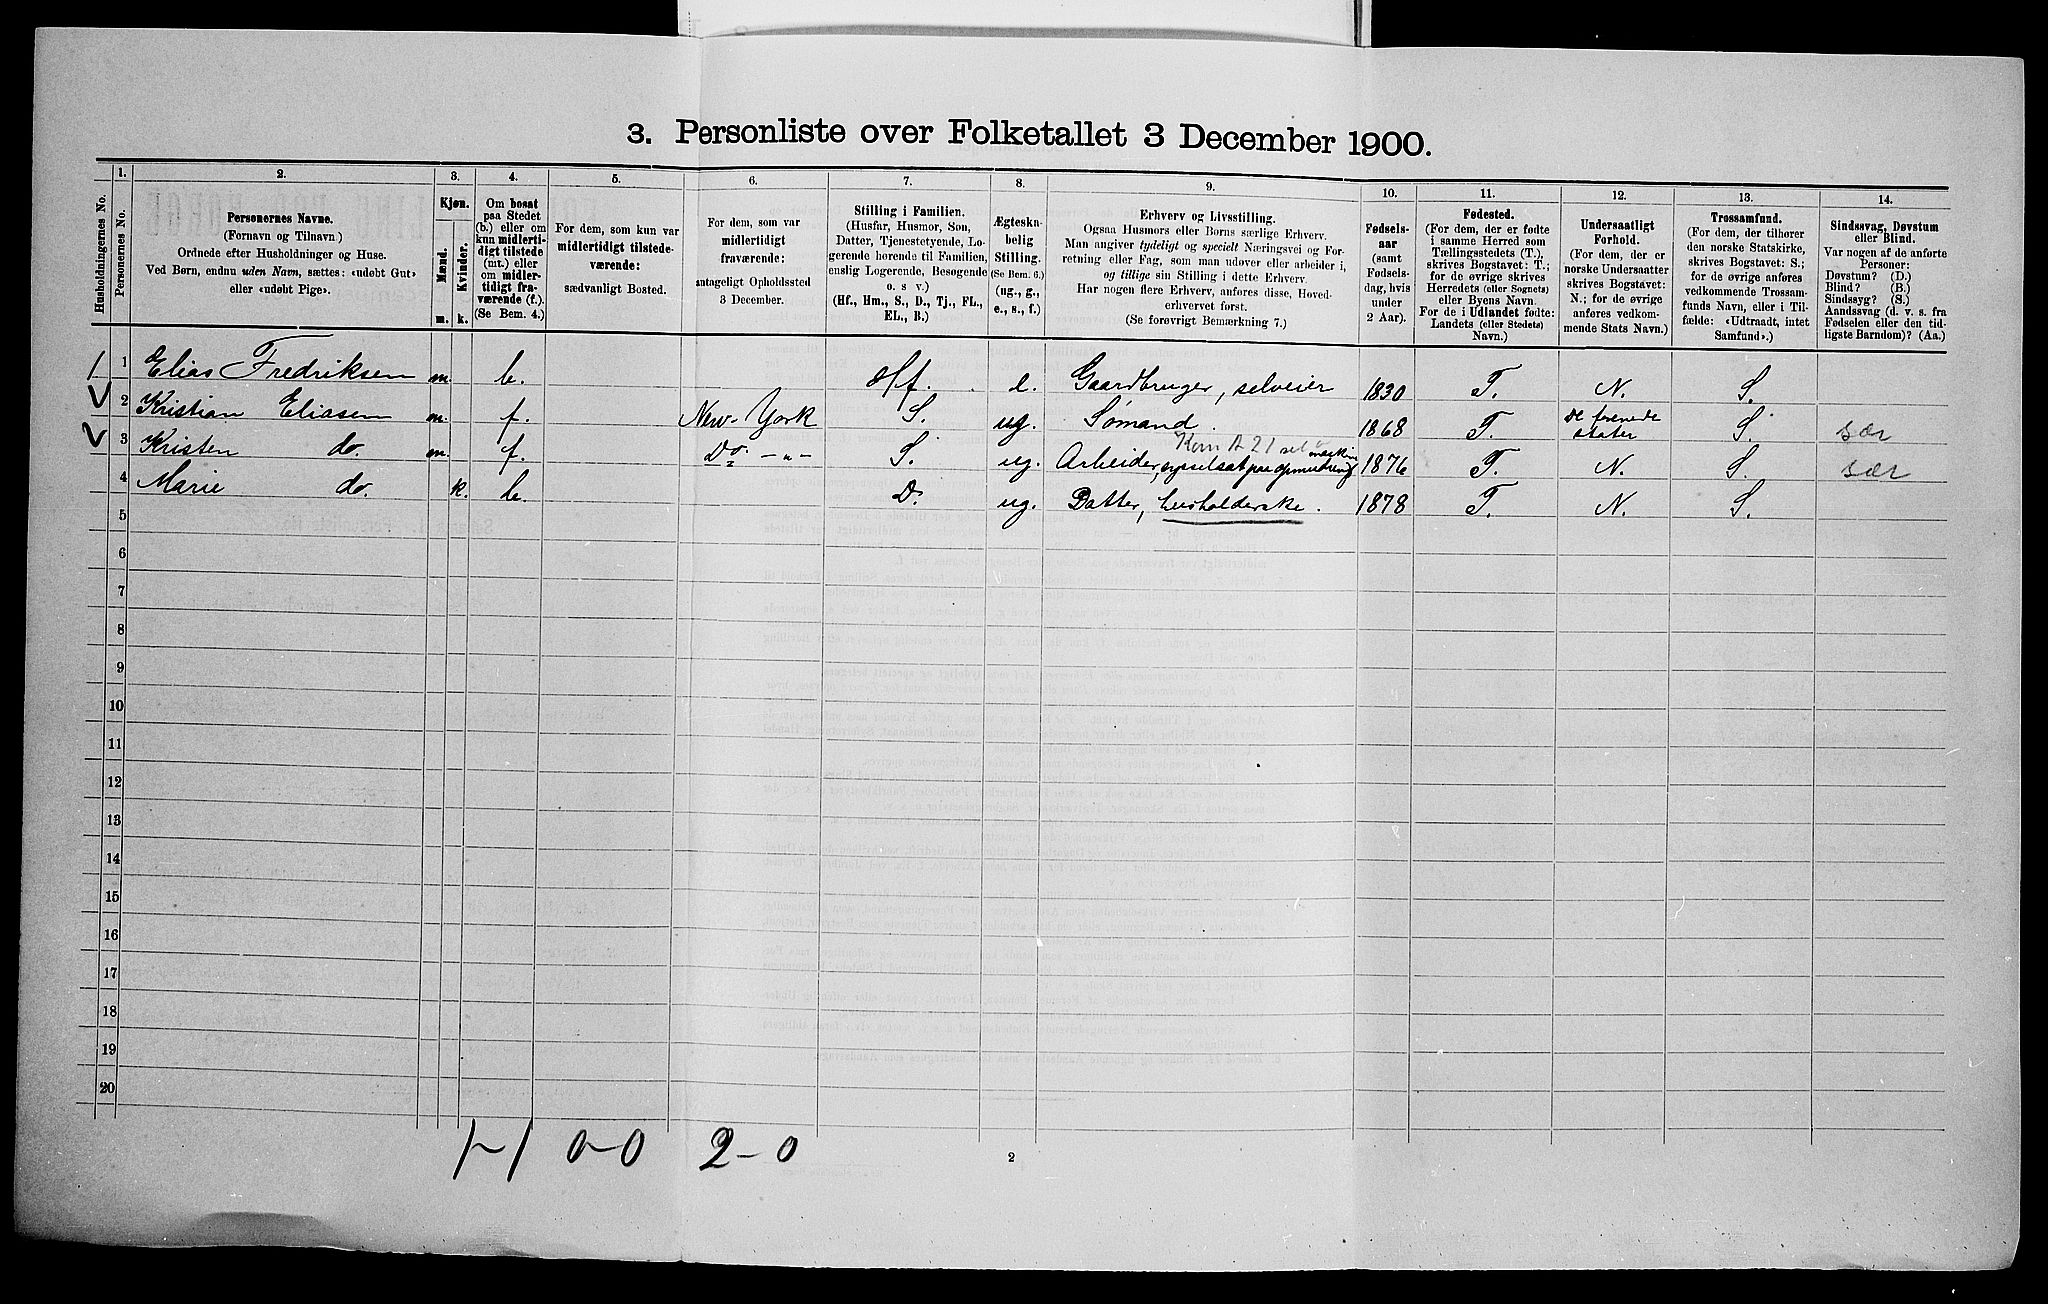 3. Personliste over Folketallet 3 December 1900.
Husholdningernes No.
1.
Personernes No.
2.
Personernes Navne.
(Fornavn og Tilnavn)
Ordnede efter Husholdninger og Huse.
Ved Børn, endnu uden Navn, sættes: «udøbt Gut»
eller «udøbt Pige».
3.
Kjøn.
Mænd.
Kvinder.
m. k.
4.
Om bosat
paa Stedet
(b.) eller om
kun midlerti-
digt tilstede
(mt.) eller
om midler-
tidigt fra-
værende (f.).
(Se Bem. 4.)
5.
For dem, som kun var
midlertidigt tilstede-
værende:
sædvanligt Bosted.
6.
For dem, som var
midlertidigt
fraværende:
antageligt Opholdssted
3 December.
7.
Stilling i Familien.
(Husfar, Husmor, Søn,
Datter, Tjenestetyende, Lo-
gerende hørende til Familien,
enslig Logerende, Besøgende
o. s v.)
(Hf., Hm., S., D., Tj., FL.,
EL., B.)
8.
Ægteska-
belig
Stilling.
(Se Bem. 6.)
(ug., g.,
e., s., f.)
9.
Erhverv og Livsstilling.
Ogsaa Husmors eller Børns særlige Erhverv.
Man angiver tydeligt og specielt Næringsvei og For-
retning eller Fag, som man udover eller arbeider i,
og tillige sin Stilling i dette Erhverv.
Har nogen flere Erhverv, anføres disse, Hoved-
erhvervet først.
(Se forøvrigt Bemærkning 7.)
10.
Fødsels-
aar
(samt
Fødsels-
dag, hvis
under
2 Aar).
11.
Fødested.
(For dem, der er fødte
i samme Herred som
Tællingsstedets (T.),
skrives Bogstavet: T.;
for de øvrige skrives
Herredets (eller Sognets)
eller Byens Navn.
For de i Udlandet fødte:
Landets (eller Stedets)
Navn.)
12.
Undersaatligt
Forhold.
(For dem, der er
norske Undersaatter
skrives Bogstavet:
N.; for de øvrige
anføres vedkom-
mende Stats Navn.)
13.
Trossamfund.
(For dem, der tilhører
den norske Statskirke,
skrives Bogstavet: S.;
for de øvrige anføres
vedkommende Trossam-
funds Navn, eller i Til-
fælde: «Udtraadt, intet
Samfund».)
14.
Sindssvag, Døvstum
eller Blind.
Var nogen af de anførte
Personer:
Døvstum? (D.)
Blind? (B.)
Sindssyg? (S.)
Aandssvag (d. v. s. fra
Fødselen eller den tid-
ligste Barndom)? (Aa.)
1 Elias Fredriksen m. b. Hf. e. Gaardbruger, selveier 1830 T. N. S.
2 Kristian Eliasen m. f. New-York S. ug. Sømand. 1868 T. De forenede stater S. sær
3 Kristen do. m. f. Do. -„- S. ug. Arbeider, 1876 T. N. S. sær
4 Marie do. k. b. D. ug. Datter, husholderske. 1878 T. N. S.
5
6
7
8
9
10
11
12
13
14
15
16
17
18
19
20
1-1 0-0 2-0
2